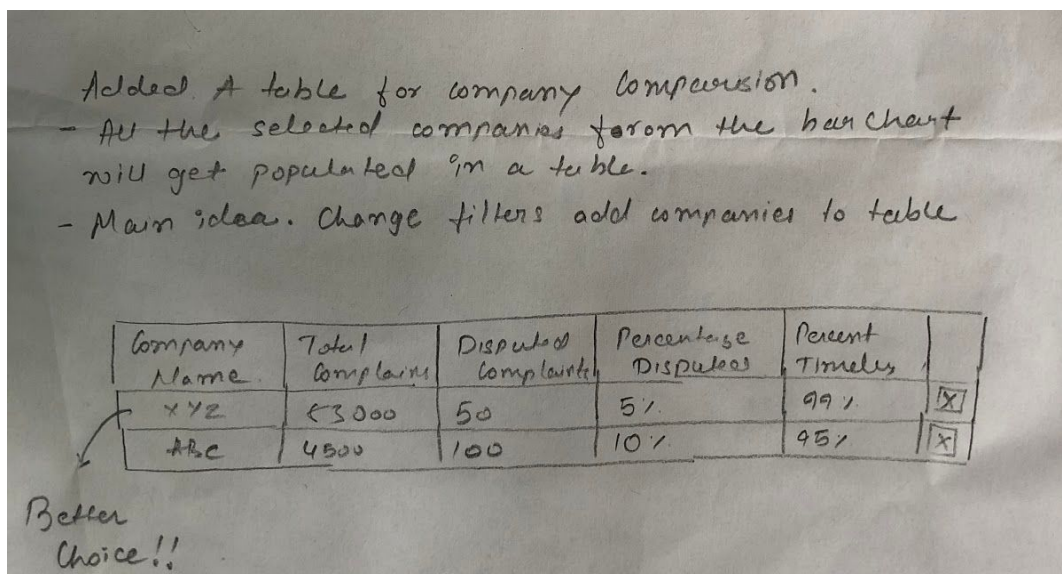 Added A table for company Comparision.
- All the selected companies from the bar chart
will get populated in a table.
- Main idea. Change filters add companies to table
Company Name Total Complains Disputed Complaints Percentage Disputes Percent Timeley
XYZ 3000 50 5% 99% X
ABC 4500 100 10% 95% X
Better
Choice!!